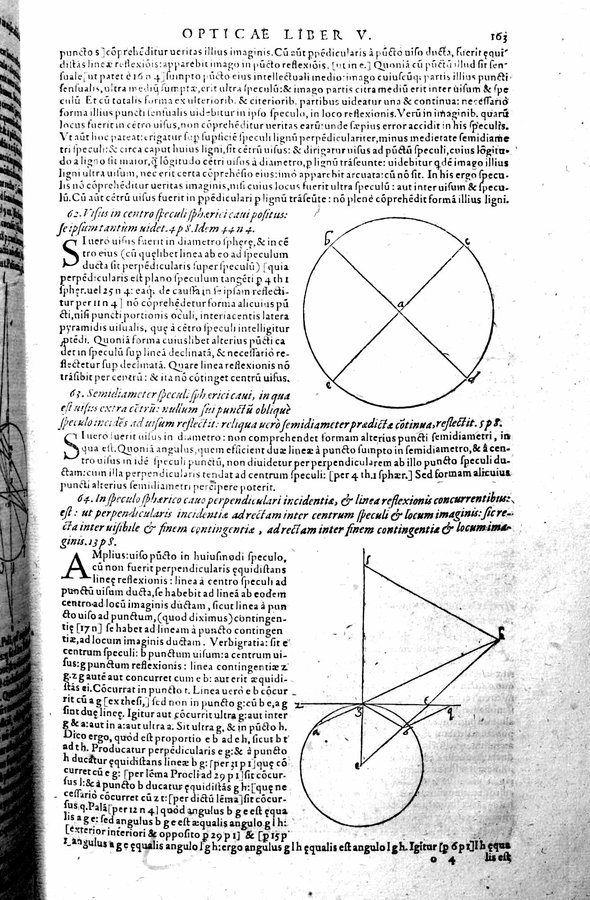 OPTICAE LIBER V. 163
puncto s] cõprehẽditur ueritas illius imaginis. Cũ aũt ppẽdicularis à pũcto uiso ducta, fuerit ęqui-
distãs lineæ reflexiõis: apparebit imago in pũcto reflexiõis. [ut in e.] Quoniã cũ pũctũ illud sit sen-
suale, [ut patet è 16 n 4] sumpto pũcto eius intellectuali medio: imago cuiuscũq; partis illius puncti
sensualis, ultra mediũ sumptæ, erit ultra speculũ: & imago partis citra mediũ erit inter uisum & spe
culũ. Et cũ totalis forma ex ulteriorib. & citeriorib. partibus uideatur una & continua: necessariò
forma illius puncti sensualis uidebitur in ipso speculo, in loco reflexionis. Verũ in imaginib. quarũ
locus fuerit in cẽtro uisus, non cõprehẽditur ueritas earũ: unde sæpius error accidit in his speculis.
Vt aũt hoc pateat: erigatur sup supficiẽ speculi lignũ perpẽdiculariter, minus medietate semidiame
tri speculi: & circa caput huius ligni, sit cẽtrũ uisus: & dirigatur uisus ad pũctũ speculi, cuius lõgitu-
do à ligno sit maior, q̃ lõgitudo cẽtri uisus à diametro, p lignũ trãseunte: uidebitur qdẽ imago illius
ligni ultra uisum, nec erit certa cõprehẽsio eius: imò apparebit arcuata: cũ nõ sit. In his ergo specu-
lis nõ cõprehẽditur ueritas imaginis, nisi cuius locus fuerit ultra speculũ: aut inter uisum & specu-
lũ. Cũ aũt cẽtrũ uisus fuerit in ppẽdiculari p lignũ trãseũte: nõ plenè cõprehẽdit formã illius ligni.
62. Visus in centro speculi sphærici caui positus:
se ipsum tantum uidet. 4 p 8. Idem 44 n 4.
SI uero uisus fuerit in diametro sphere, & in cẽ
tro eius (cũ quęlibet linea ab eo ad speculum
ducta sit perpẽdicularis super speculũ) [quia
perpẽdicularis est plano speculum tangẽti p 4 th 1
sphęr. uel 25 n 4: eaq; de causa in se ipsam reflecti-
tur per 11 n 4] nõ cõprehẽdetur forma alicuius pũ
cti, nisi puncti portionis oculi, interiacentis latera
pyramidis uisualis, quę à cẽtro speculi intelligitur
ptẽdi. Quoniã forma cuiuslibet alterius pũcti ca
det in speculũ sup lineã declinatã, & necessariò re-
flectetur sup declinatã. Quare linea reflexionis nõ
trãsibit per centrũ: & ita nõ cõtinget centrũ uisus.
b c
a
e d
63. Semidiameter speculi sphærici caui, in qua
est uisus extra cẽtrũ: nullum sui punctũ obliquè
speculo incidẽs ad uisum reflectit: reliqua uerò semidiameter prædictæ cõtinua, reflectit. 5 p 8.
SI uero fuerit uisus in diametro: non comprehendet formam alterius puncti semidiametri, in
qua est. Quoniã angulus, quem efficient duæ lineæ à puncto sumpto in semidiametro, & à cen-
tro uisus in idẽ speculi punctũ, non diuidetur per perpendicularem ab illo puncto speculi du-
ctam: cum illa perpendicularis tendat ad centrum speculi: [per 4 th. 1 sphær.] Sed formam alicuius
puncti alterius semidiametri percipere poterit.
64. In speculo sphærico cauo perpendiculari incidentiæ, & linea reflexionis concurrentibus:
est: ut perpendicularis incidentiæ ad rectam inter centrum speculi & locum imaginis: sic re-
cta inter uisibile & finem contingentiæ, ad rectam inter finem contingentiæ & locum ima-
ginis. 13 p 8.
AMplius: uiso pũcto in huiusmodi speculo,
cũ non fuerit perpendicularis ęquidistans
lineę reflexionis: linea à centro speculi ad
punctũ uisum ducta, se habebit ad lineã ab eodem
centro ad locũ imaginis ductam, sicut linea à pun
cto uiso ad punctum, (quod diximus) contingen-
tię [17 n] se habet ad lineam à puncto contingen
tiæ, ad locum imaginis ductam. Verbi gratia: sit e
centrum speculi: b punctum uisum: a centrum ui-
sus: g punctum reflexionis: linea contingentiæ z
g. z g autẽ aut concurret cum e b: aut erit æquidi-
stãs ei. Cõcurrat in puncto t. Linea uero e b cõcur
rit cũ a g [ex thesi,] sed non in puncto g: cũ b e, a g
sint duę lineę. Igitur aut cõcurrit ultra g: aut inter
g & a: aut in a: aut ultra a. Sit ultra g, & in pũcto h.
Dico ergo, quòd est proportio e b ad e h, sicut b t
ad t h. Producatur perpẽdicularis e g: & à puncto
h ducatur ęquidistans lineæ b g: [per 31 p 1] quę cõ
curret cũ e g: [per lẽma Procli ad 29 p 1] sit cõcur-
sus l: & à puncto b ducatur ęquidistãs g h: [quę ne
cessariò cõcurret cũ z t: [per dictũ lẽma] sit cõcur-
sus q. Palã [per 12 n 4] quòd angulus b g e est ęqua
lis a g e: sed angulus b g e est æqualis angulo g l h:
[exterior interiori & opposito p 29 p 1] & [p 15 p
1] angulus a g e ęqualis angulo l g h: ergo angulus g l h ęqualis est angulo l g h. Igitur [p 6 p 1] l h ęqua
l
h
z g t q
a b
e
o 4 lis est